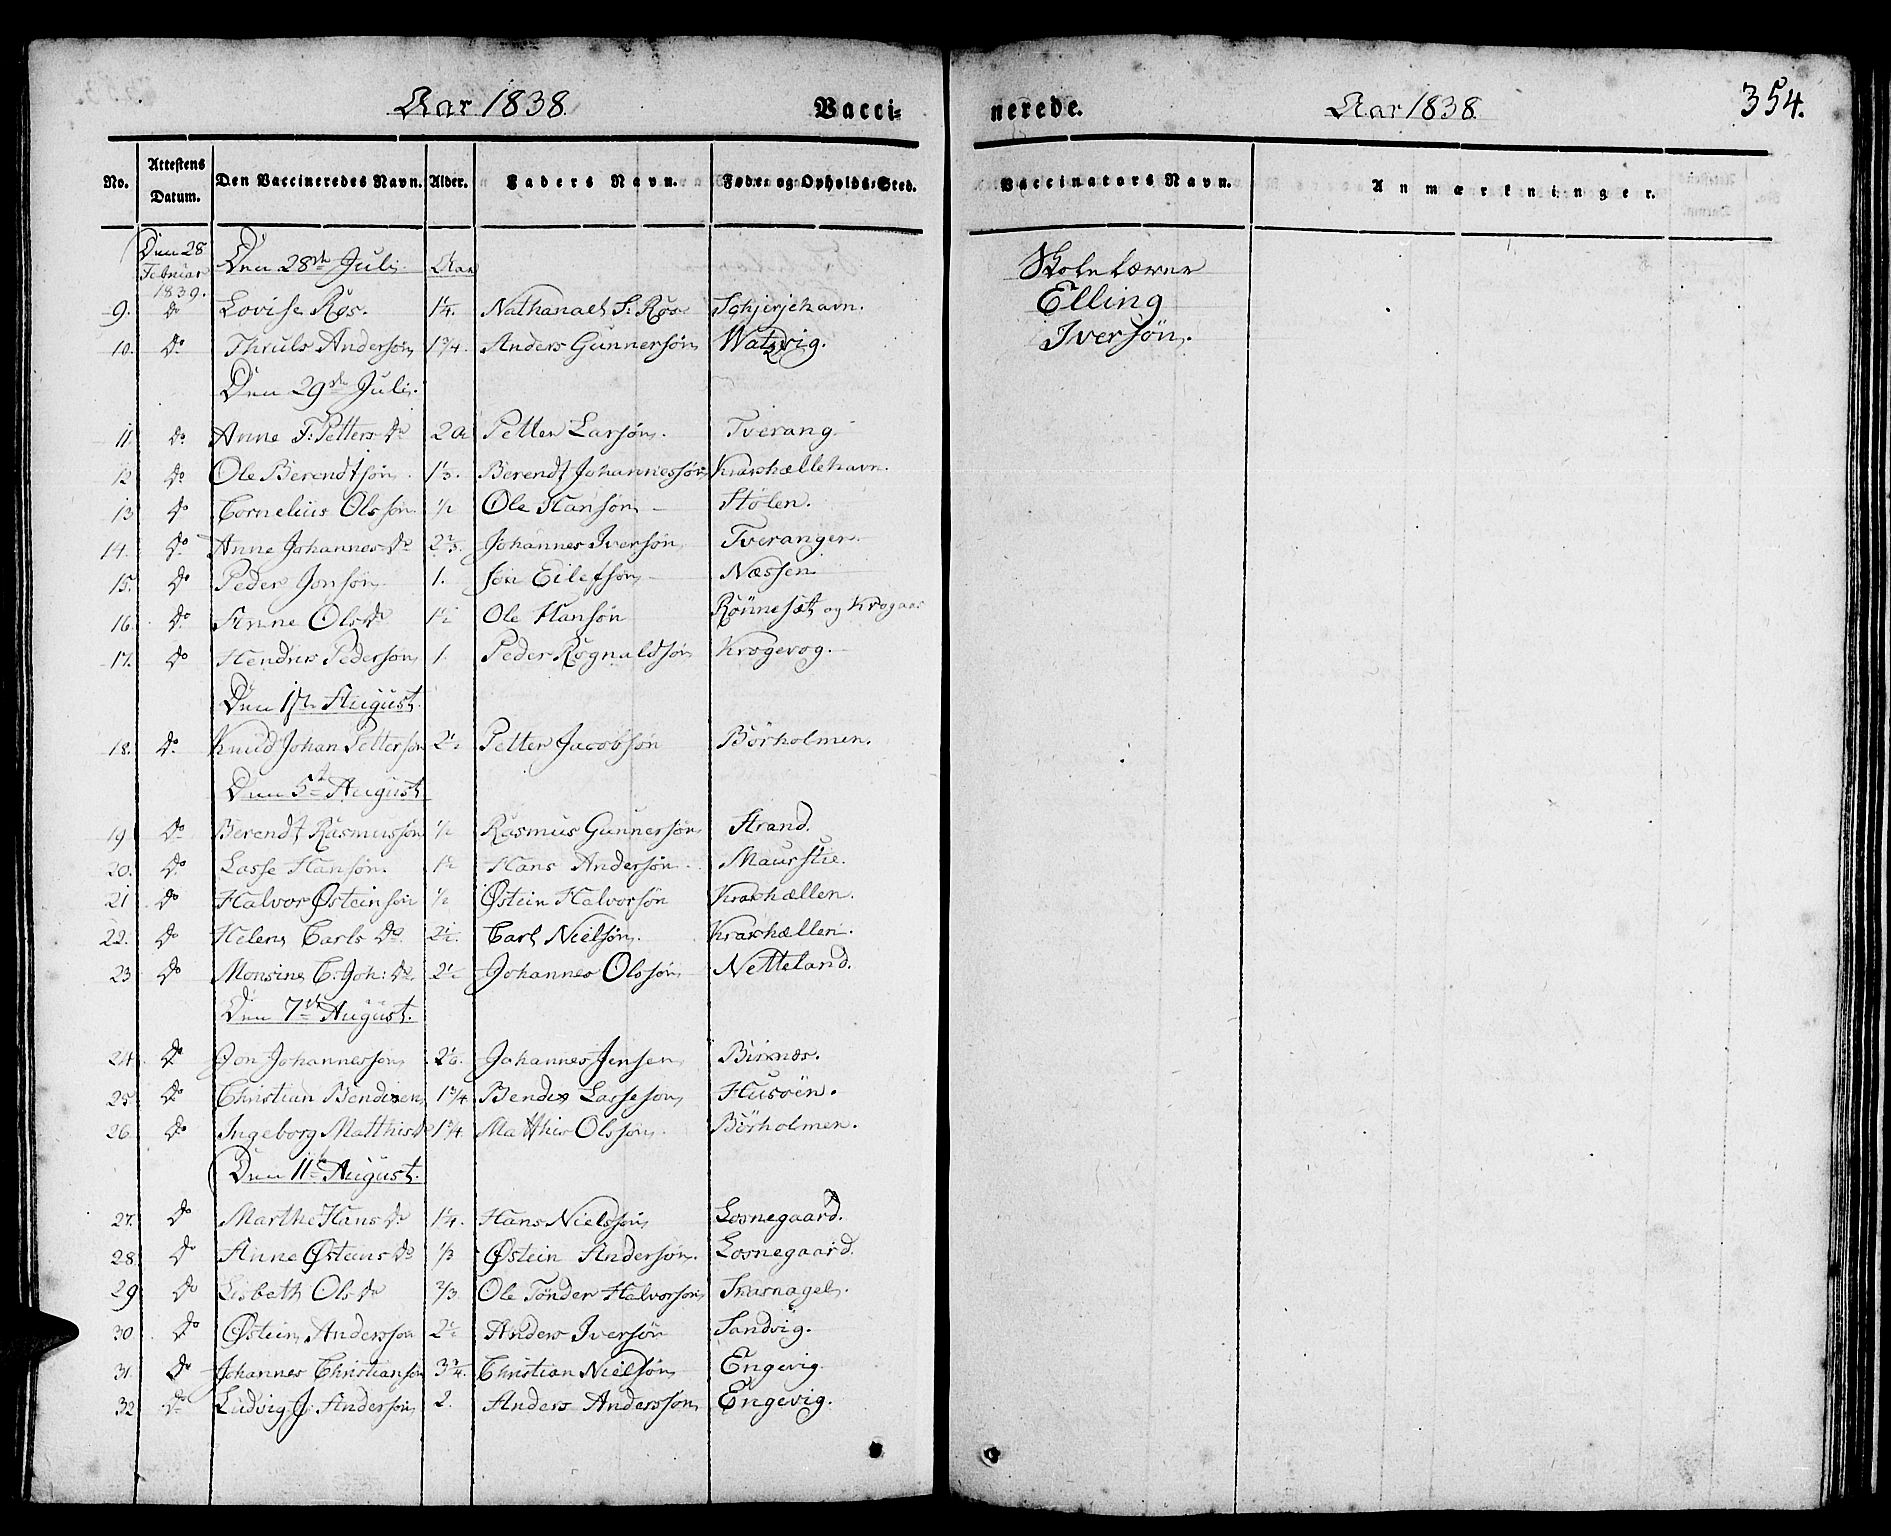 Aar 1838. Vacci- nerede. Aar 1838. 354.
No. Attestens Datum. Den Vaccineredes Navn. Alder. Faders Navn. Føde- og Opholds-Sted. Vaccinators Navn. Anmærkninger.
Den 28 Februar 1839. Den 28de Juli Aar Skolelærer
9. do Lovise Røs. 1¼. Nathanael S: Røs Schjerjehavn. Elling
10. do Thruls Andersøn 1¾. Anders Gunnersøn Watzvig. Iversøn.
Den 29de Juli.
11. do Anne F: Petters Dr 2 a Petter Larsøn. Tverang
12 do Ole Berendtsøn 1⅓. Berendt Johannessøn Krakhællehavn.
13 do Cornelius Olssøn ½ Ole Hansøn Stølen.
14. do Anne Johannes Dr 2⅔. Johannes Iversøn Tveranger.
15. do Peder Jonsøn 1. Jon Eilefsøn Næssen
16. do Anne Ols Dr 1½ Ole Hansøn Rönnesæt og Krogaas
17. do Hendrik Pedersøn 1. Peder Rognaldsøn Krogevog.
Den 1ste August.
18. do Knud Johan Pettersøn 2½ Petter Jacobsøn Börholmen.
Den 5te August
19 do Berendt Rasmussøn ½ Rasmus Gunnersøn Strand.
20. do Lasse Hansøn. 1½ Hans Andersøn Maurstie.
21 do Halvor Østeinsøn ½ Østein Halvorsøn Krakhællen.
22. do Helene Carls Dr. 2½. Carl Nielsøn. Krakhællen.
23 do Monsine C: Joh: Dr 2½ Johannes Olssøn Netteland.
Den 7de August.
24 do Jon Johannessøn 2⅙. Johannes Jensen Birknæs.
25 do Christian Bendixen 1¾ Bendix Lassesøn Husöen.
26. do Ingeborg Matthis Dr 1¾. Matthis Olssøn. Börholmen.
Den 11te August.
27. do Marthe Hans Dr 1¼. Hans Nielssøn Losnegaard.
28. do Anne Østens Dr ⅓ Østein Andersøn. Losnegaard.
29 do Lisbeth Ols Dr ⅔ Ole Tönder Halvorsøn Snarnagel.
30 do Østein Anderssøn 2½ Anders Iversøn Sandvig.
31. do Johannes Christiansøn 3¾. Christian Nielsøn Engevig.
32 do Ludvig J: Andersøn 2. Anders Anderssøn Engevig.